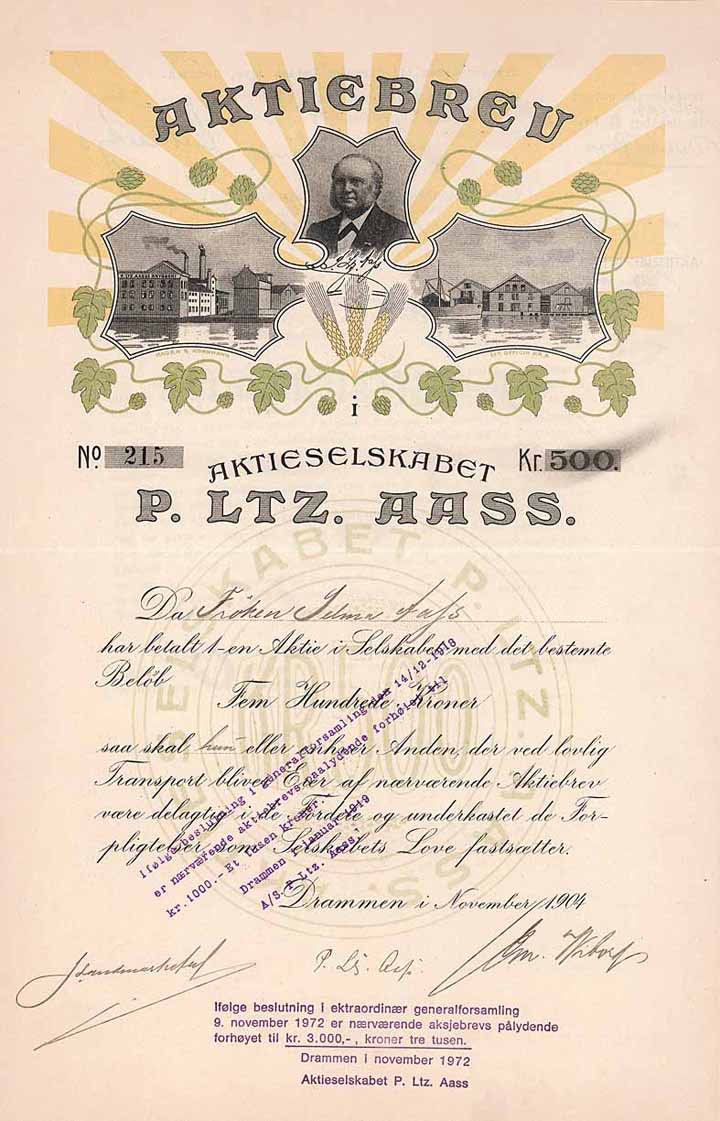 AKTIEBREV
P. Ltz. Aass
i
No 215
AKTIESELSKABET
Kr. 500.
P. LTZ. AASS.
Da Fröken Selma Aass
har betalt 1-en Aktie i Selskabet med det bestemte
Beløb
Fem Hundrede Kroner
saa skal hun eller enhver Anden, der ved lovlig
Transport bliver Eier af nærværende Aktiebrev
være delagtig i de Fordele og underkastet de For-
pligtelser, som Selskabets Love fastsætter.
Drammen i November 1904
Ifølge beslutning i generalforsamling den 14/12-1918
er nærværende aktiebrevs paalydende forhøiet til
kr.1000.- Et tusen kroner.
Drammen 1 januar 1919
A/S. P. Ltz. Aass.
P. Ltz. Aass.
Ifølge beslutning i ektraordinær generalforsamling
9. november 1972 er nærværende aksjebrevs pålydende
forhøyet til kr. 3.000,-, kroner tre tusen.
Drammen i november 1972
Aktieselskabet P. Ltz. Aass